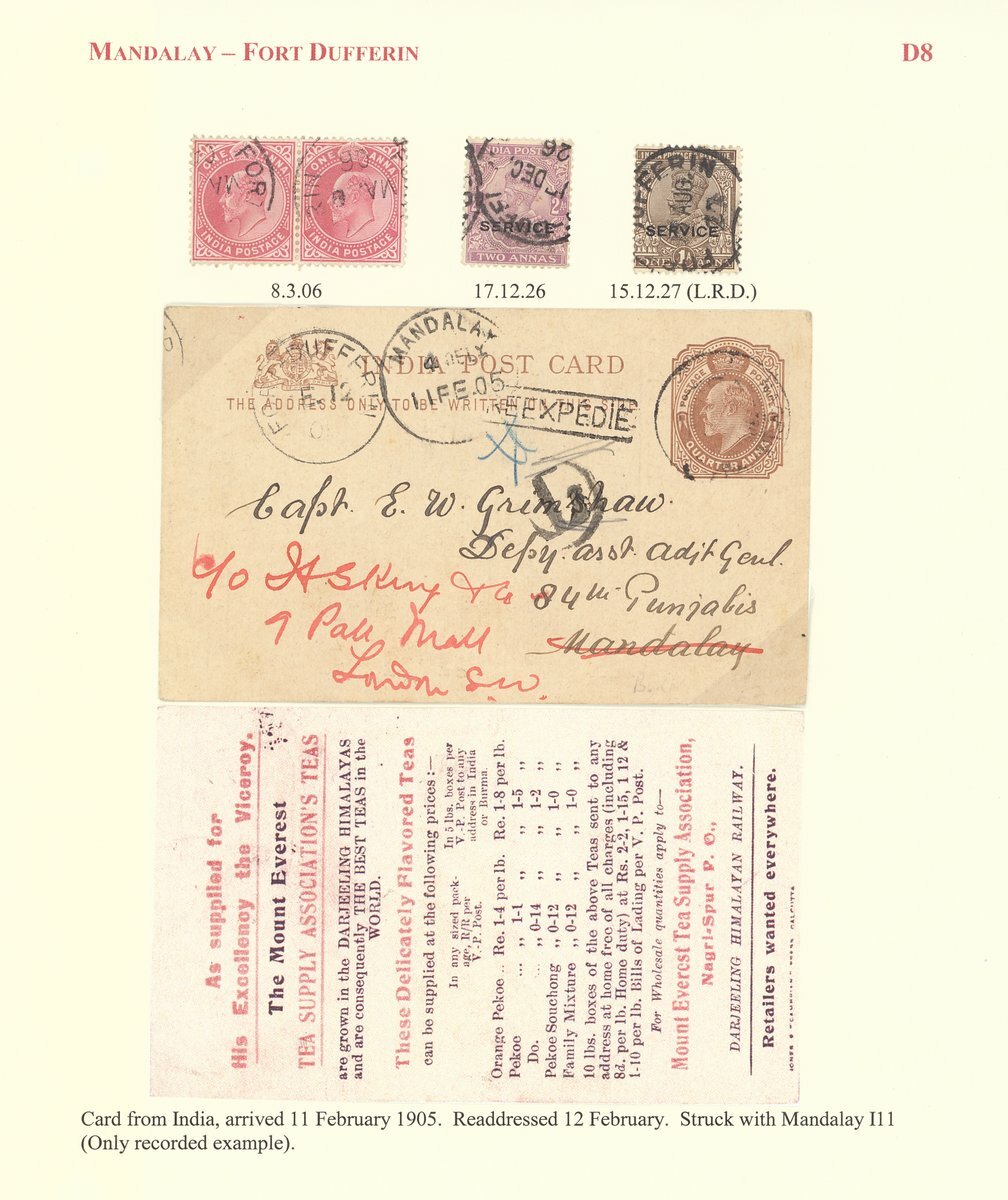 MANDALAY – FORT DUFFERIN
D8
ONE ANNA
INDIA POSTAGE
FORT
MA
ONE ANNA
INDIA POSTAGE
MA.
06
INDIA POSTAGE
DEC.
26
DUFF
SERVICE
TWO ANNAS
UFFERIN
AUG.
SERVICE
1A
8.3.06
17.12.26
15.12.27 (L.R.D.)
FORT DUFFERIN
12
MANDALAY
4 DELY
11 FE.05
INDIA POST CARD
THE ADDRESS ONLY TO BE WRITTEN ON THIS SIDE
EEXPÉDIÉ
POSTAGE
QUARTER ANNA
Capt. E. W. Grimshaw.
Depy. asst. adjt Genl.
c/o H S King & Co
84th Punjabis
9 Pall Mall
Mandalay
London S.W.
As supplied for
His Excellency the Viceroy.
The Mount Everest
TEA SUPPLY ASSOCIATION'S TEAS
are grown in the DARJEELING HIMALAYAS
and are consequently THE BEST TEAS in the
WORLD.
These Delicately Flavored Teas
can be supplied at the following prices :—
In any sized pack-
age, R/R per
V.-P. Post.
In 5 lbs. boxes per
V.-P. Post to any
address in India
or Burma.
Orange Pekoe .. Re. 1-4 per lb. Re. 1-8 per lb.
Pekoe ... ,, 1-1 ,, ,, 1-5 ,,
Do. ... ,, 0-14 ,, ,, 1-2 ,,
Pekoe Souchong ,, 0-12 ,, ,, 1-0 ,,
Family Mixture ,, 0-12 ,, ,, 1-0 ,,
10 lbs. boxes of the above Teas sent to any
address at home free of all charges (including
8d. per lb. Home duty) at Rs. 2-2, 1-15, 1 12 &
1-10 per lb. Bills of Lading per V. P. Post.
For Wholesale quantities apply to—
Mount Everest Tea Supply Association,
Nagri-Spur P. O.,
DARJEELING HIMALAYAN RAILWAY.
Retailers wanted everywhere.
CALCUTTA
Card from India, arrived 11 February 1905. Readdressed 12 February. Struck with Mandalay I11
(Only recorded example).